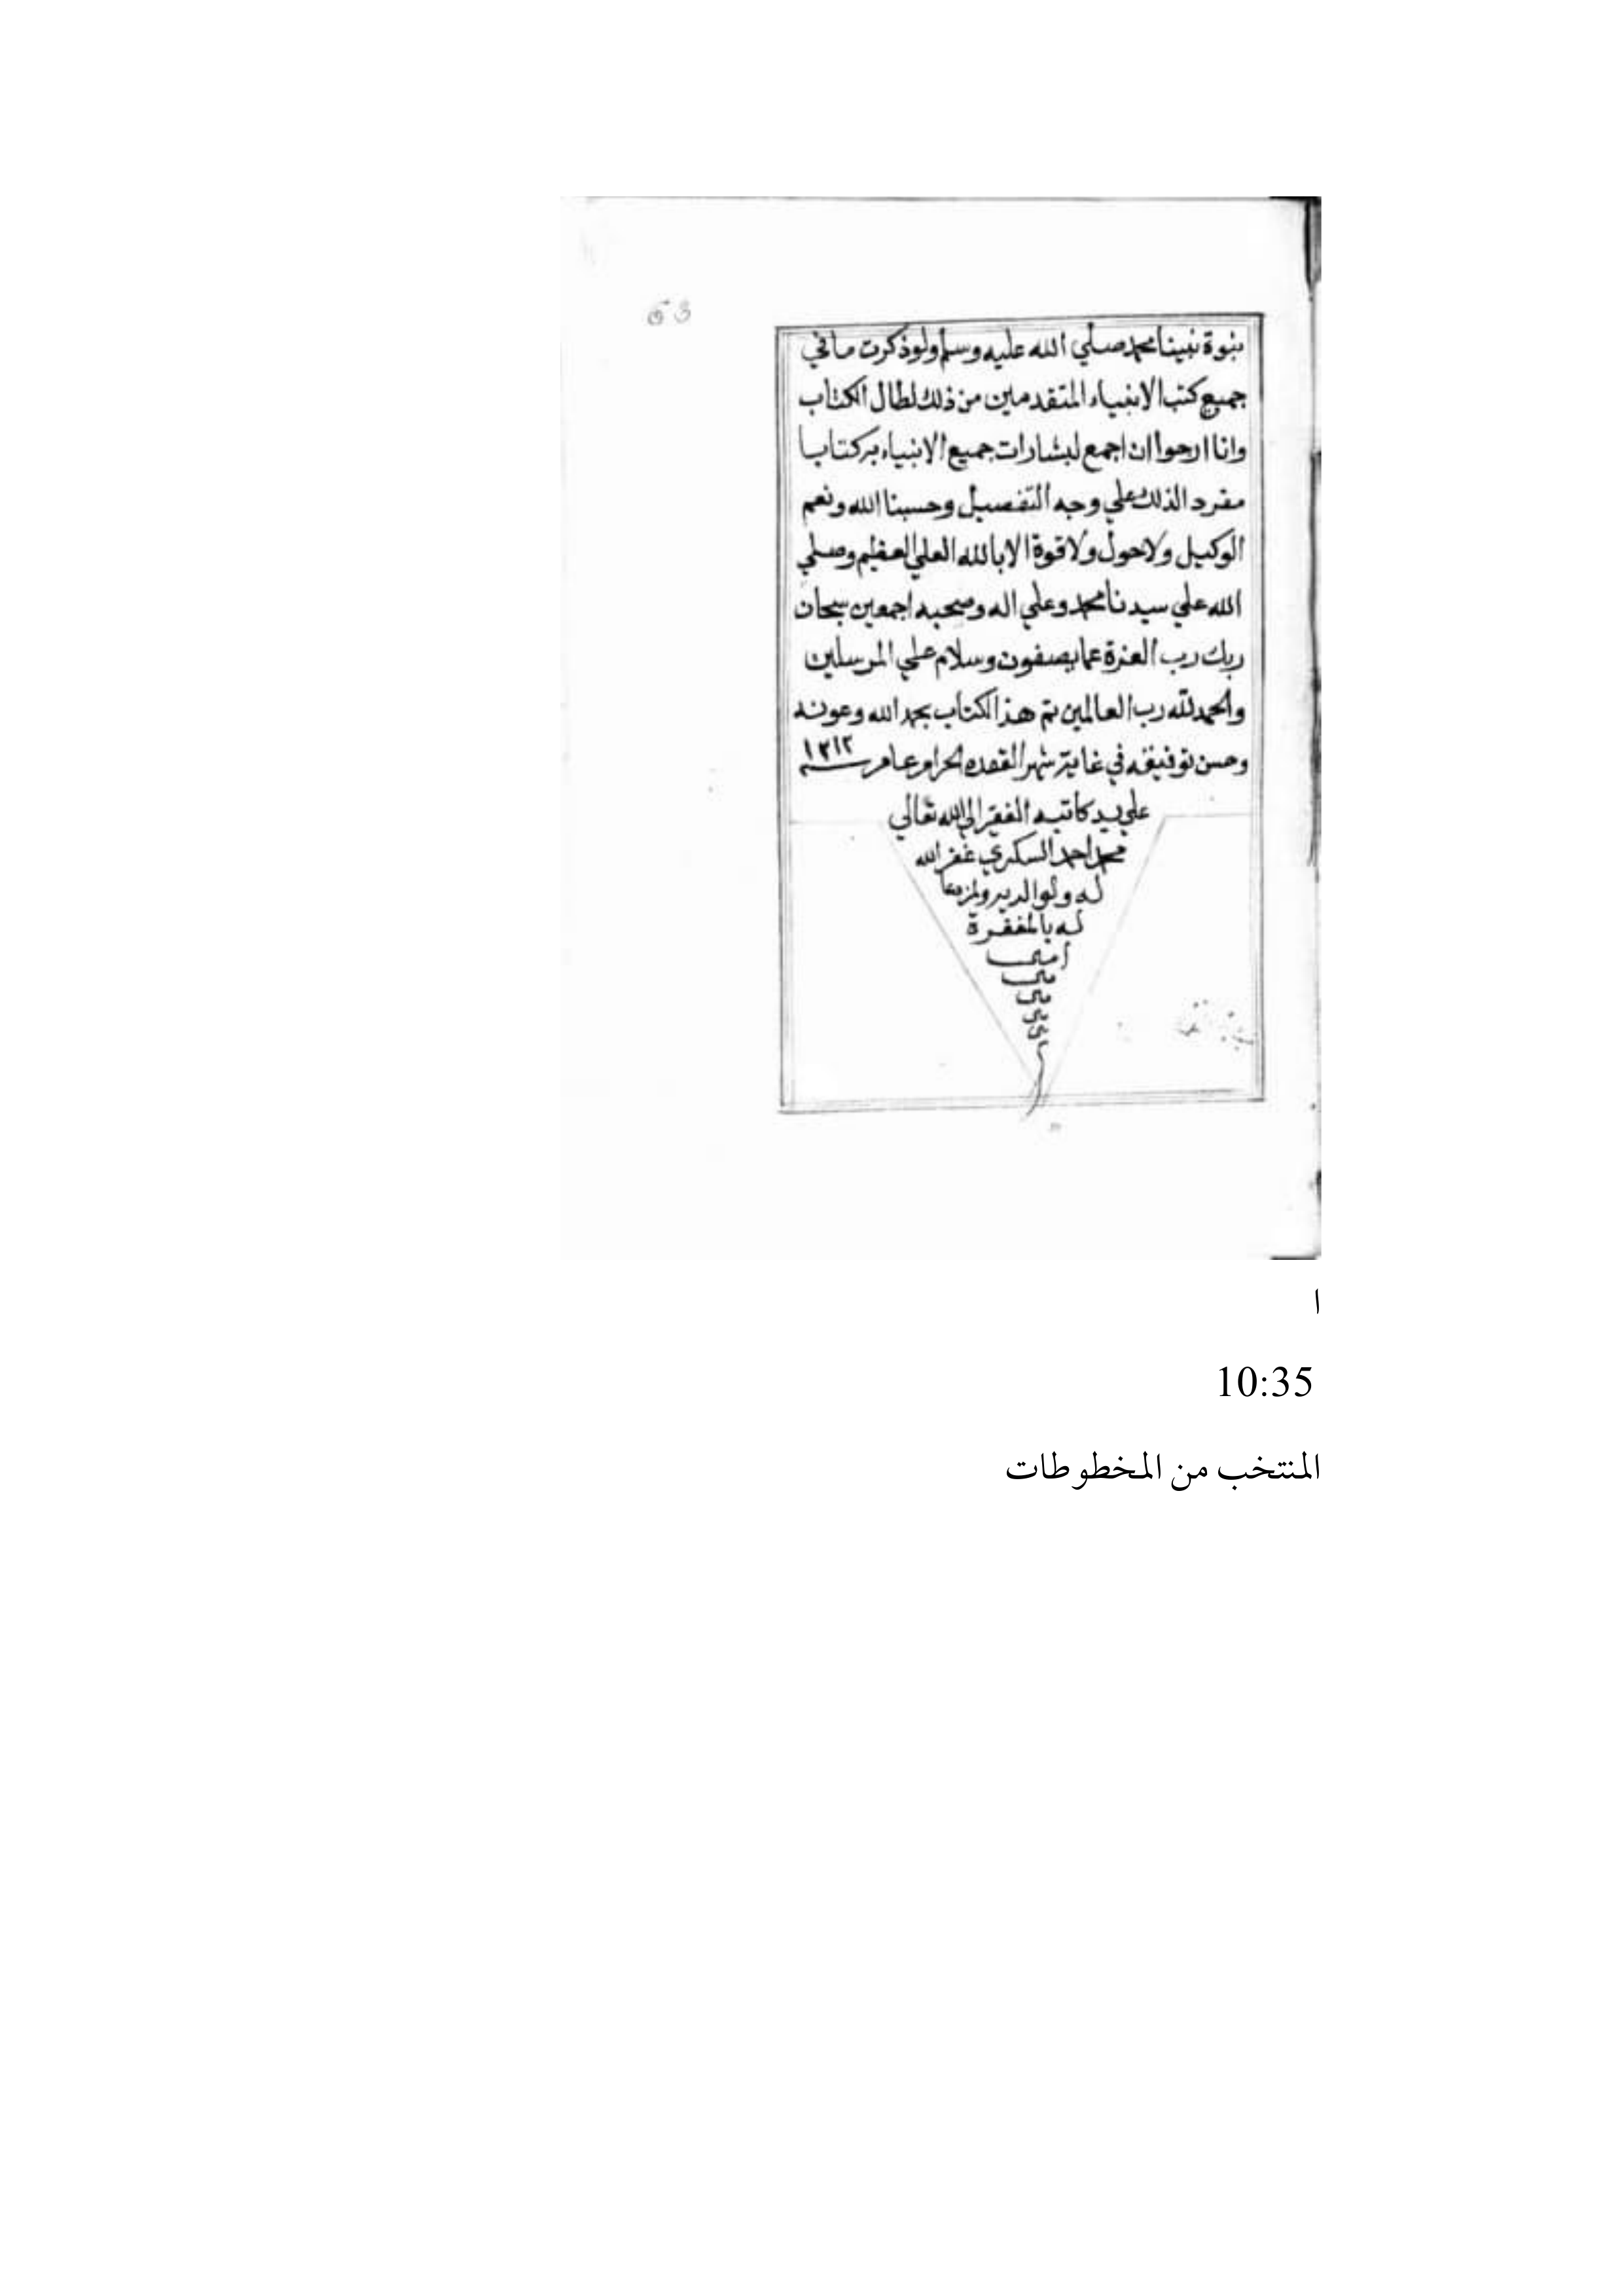 بنبوة نبينا محمد صلي الله عليه وسلم ولو ذكرت ما في
جميع كتب الانبياء المتقدمين من ذلك لطال الكتاب
وانا ارجوا ان اجمع لبشارات جميع الانبياء به كتابا
مفردا لذلك علي وجه التفصيل وحسبنا الله ونعم
الوكيل ولا حول ولا قوة الا بالله العلي العظيم وصلي
الله علي سيدنا محمد وعلي اله وصحبه اجمعين سبحان
ربك رب العزة عما يصفون وسلام علي المرسلين
والحمد لله رب العالمين تم هذا الكتاب بحمد الله وعونه
وحسن توفيقه في غاية شهر القعده الحرام عام سنه ١٣١٢
علي يد كاتبه الفقير الي الله تعالي
محمد احمد السكري غفر الله
له ولوالديه ولمن دعا
له بالمغفرة
امين
ا
10:35
المنتخب من المخطوطات